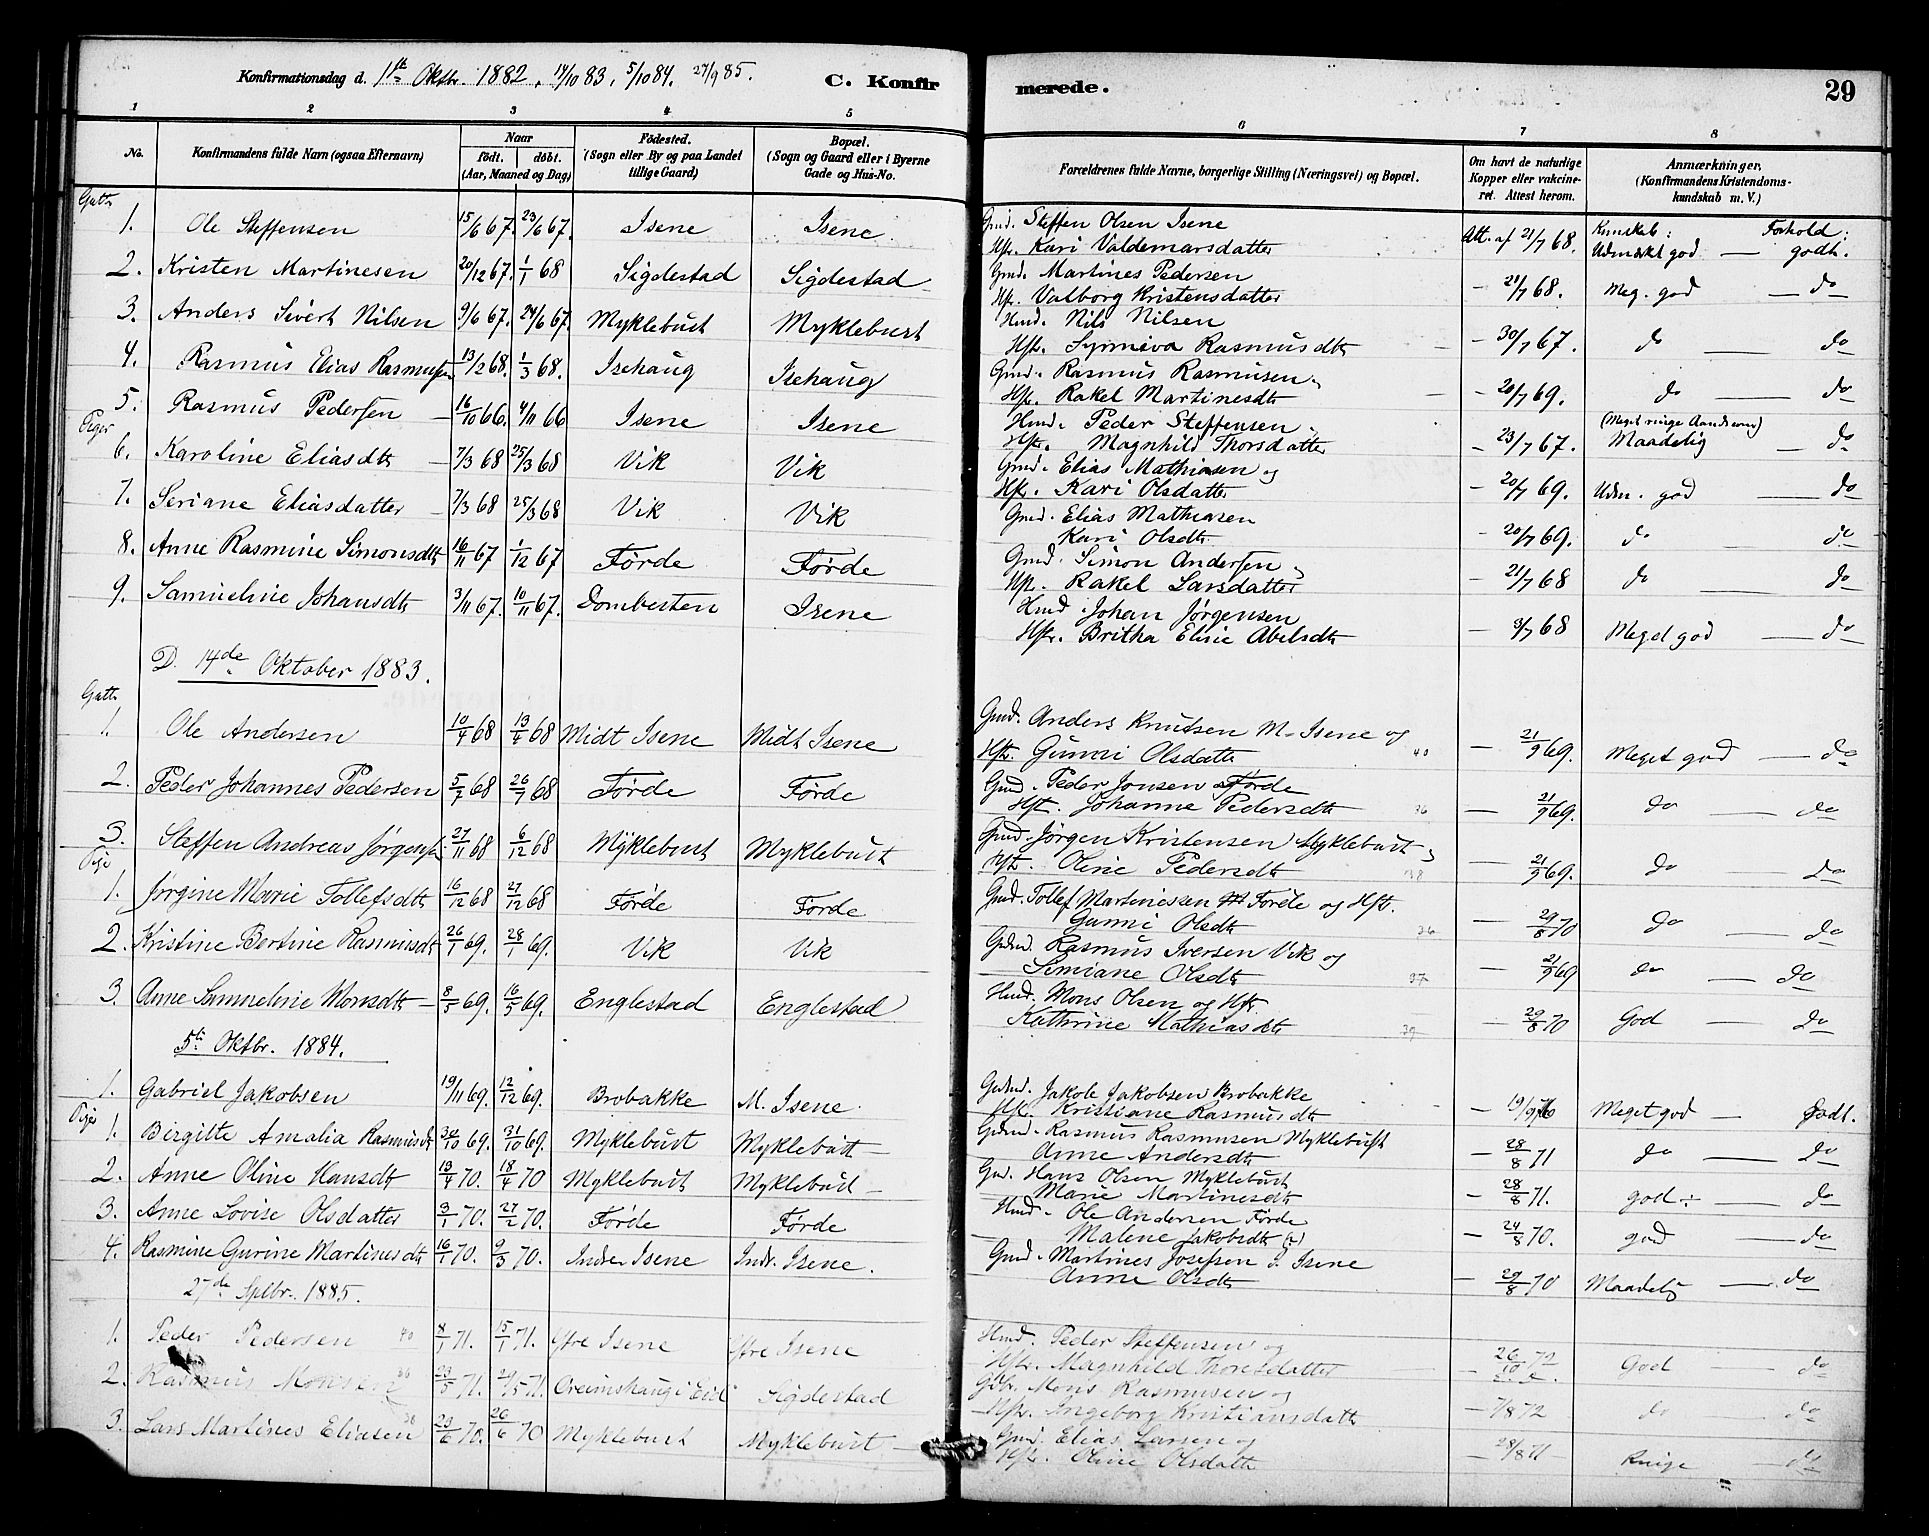 Konfirmationsdag d. 1ste Oktbr. 1882, 14/10 83, 5/10 84, 27/9 85. C. Konfirmerede. 29
1 2 3 4 5 6 7 8
No. Konfirmandens fulde Navn (ogsaa Efternavn) Naar født. døbt. (Aar, Maaned og Dag) Fødested. (Sogn eller By og paa Landet tillige Gaard) Bopæl. (Sogn og Gaard eller i Byerne Gade og Hus-No. Forældrenes fulde Navne, borgerlige Stilling (Næringsvei) og Bopæl. Om havt de naturlige Kopper eller vakcineret. Attest herom. Anmærkninger, (Konfirmandens Kristendomskundskab m. V.)
Gutter
1. Ole Steffensen 15/6 67. 23/6 67. Isene Isene Gmd. Steffen Olsen Isene Att. af 21/7 68. Kunskab: Forhold:
Hstr. Kari Valdemarsdatter Udmærket god — godt.
2. Kristen Martinesen 20/12 67. 1/1 68 Sigdestad Sigdestad Gmd. Martines Pedersen
Hstr. Valborg Kristensdatter — 21/7 68. Meg. god — do
3. Anders Sivert Nilsen 9/6 67. 24/6 67. Myklebust Myklebust Hmd. Nils Nilsen
Hstr. Synneva Rasmusdtr — 30/7 67. do — do
4. Rasmus Elias Rasmussen 13/2 68. 1/3 68. Isehaug Isehaug Gmd. Rasmus Rasmusen
Hstr. Rakel Martinesdtr — 20/7 69. do — do
5. Rasmus Pedersen 16/10 66. 4/11 66 Isene Isene Hmd. Peder Steffensen (Meget ringe Aandsevne)
Hstr. Magnhild Thorsdatter — 23/7 67. Maadelig do
Piger
6. Karoline Eliasdtr 7/3 68 25/3 68 Vik Vik Gmd. Elias Mathiasen og
Hstr. Kari Olsdatter — 20/7 69. Udm. god — do
7. Seriane Eliasdatter 7/3 68 25/3 68 Vik Vik Gmd. Elias Mathiasen
Kari Olsdtr — 20/7 69. do do
8. Anne Rasmine Simonsdtr 16/11 67 1/12 67 Førde Førde Gmd. Simon Andersen
Hstr. Rakel Larsdatter — 21/7 68 do — do
9. Samueline Johansdtr 3/11 67. 10/11 67. Dombesten Isene Hmd. Johan Jørgensen
Hstr. Britha Elisie Abelsdtr — 3/7 68 Meget god — do
D. 14de Oktober 1883.
Gutter
1. Ole Andersen 10/4 68 13/4 68 Midt Isene Midt Isene Gmd. Anders Knutsen M. Isene og
Hstr. Gunni Olsdatter 40 — 21/9 69. Meget god — do
2. Peder Johannes Pedersen 5/7 68 26/7 68 Førde Førde Gmd. Peder Jonsen Førde
Hstr. Johanne Pedersdtr 36 — 21/9 69. do — do
3. Steffen Andreas Jørgensen 27/11 68 6/12 68 Myklebust Myklebust Gmd. Jørgen Kristensen Myklebust
Hstr. Oline Pedersdtr 38 — 21/9 69. do — do
Piger
1. Jørgine Marie Tollefsdtr 16/12 68 27/12 68 Førde Førde Gmd. Tollef Martinesen Førde og Hstr.
Gunni Olsdtr 36 — 29/8 70 do — do
2. Kristine Bertine Rasmusdtr 26/1 69. 28/1 69. Vik Vik Gbmd. Rasmus Iversen Vik og
Simiane Olsdtr 37 — 21/9 69 do — do
3. Anne Samueline Monsdtr 8/5 69. 16/5 69. Englestad Englestad Hmd. Mons Olsen og Hstr.
Kathrine Mathiasdtr 39 — 29/8 70 God — do
5te Oktbr. 1884.
1. Gabriel Jakobsen 19/11 69. 12/12 69. Brobakke M. Isene. Gbmd. Jakob Jakobsen Brobakke
Hstr. Kristiane Rasmusdtr — 19/9 Meget god — Godt.
Piger
1. Birgitte Amalia Rasmusdtr 30/10 69. 31/10 69. Myklebust Myklebust Gbmd. Rasmus Rasmusen Myklebust
Anne Andersdtr — 28/8 71 do — do
2. Anne Oline Hansdtr 13/4 70. 18/4 70 Myklebust Myklebust Gmd. Hans Olsen Myklebust
Marie Martinesdtr — 28/8 71. god ÷ — do
3. Anne Lovise Olsdatter 3/1 70. 27/2 70. Førde Førde Hmd. Ole Andersen Førde
Malene Jakobsdtr — 24/8 70. god — do
4. Rasmine Gurine Martinesdtr 16/1 70. 9/3 70. Indre Isene Indr. Isene. Gmd. Martines Josefsen I. Isene
Anne Olsdtr — 29/8 70 Maadelig — do
27de Sptbr. 1885.
1. Peder Pedersen 40 8/1 71. 15/1 71. Yfre Isene Yfre Isene Hmd. Peder Steffensen og
Hstr. Magnhild Thoresdatter — 26/10 72 God — do
2. Rasmus Monsen 36 23/5 71. 29/5 71. Sigdestad Mons Rasmusen og
Hstr. Ingeborg Kristiansdatter — 7/8 72 do — do
3. Lars Martines Eliasen 38 23/6 70. 26/6 70 Myklebust Myklebust Gmd. Elias Larsen og
Hstr. Oline Olsdatter — 28/8 71 Ringe — do